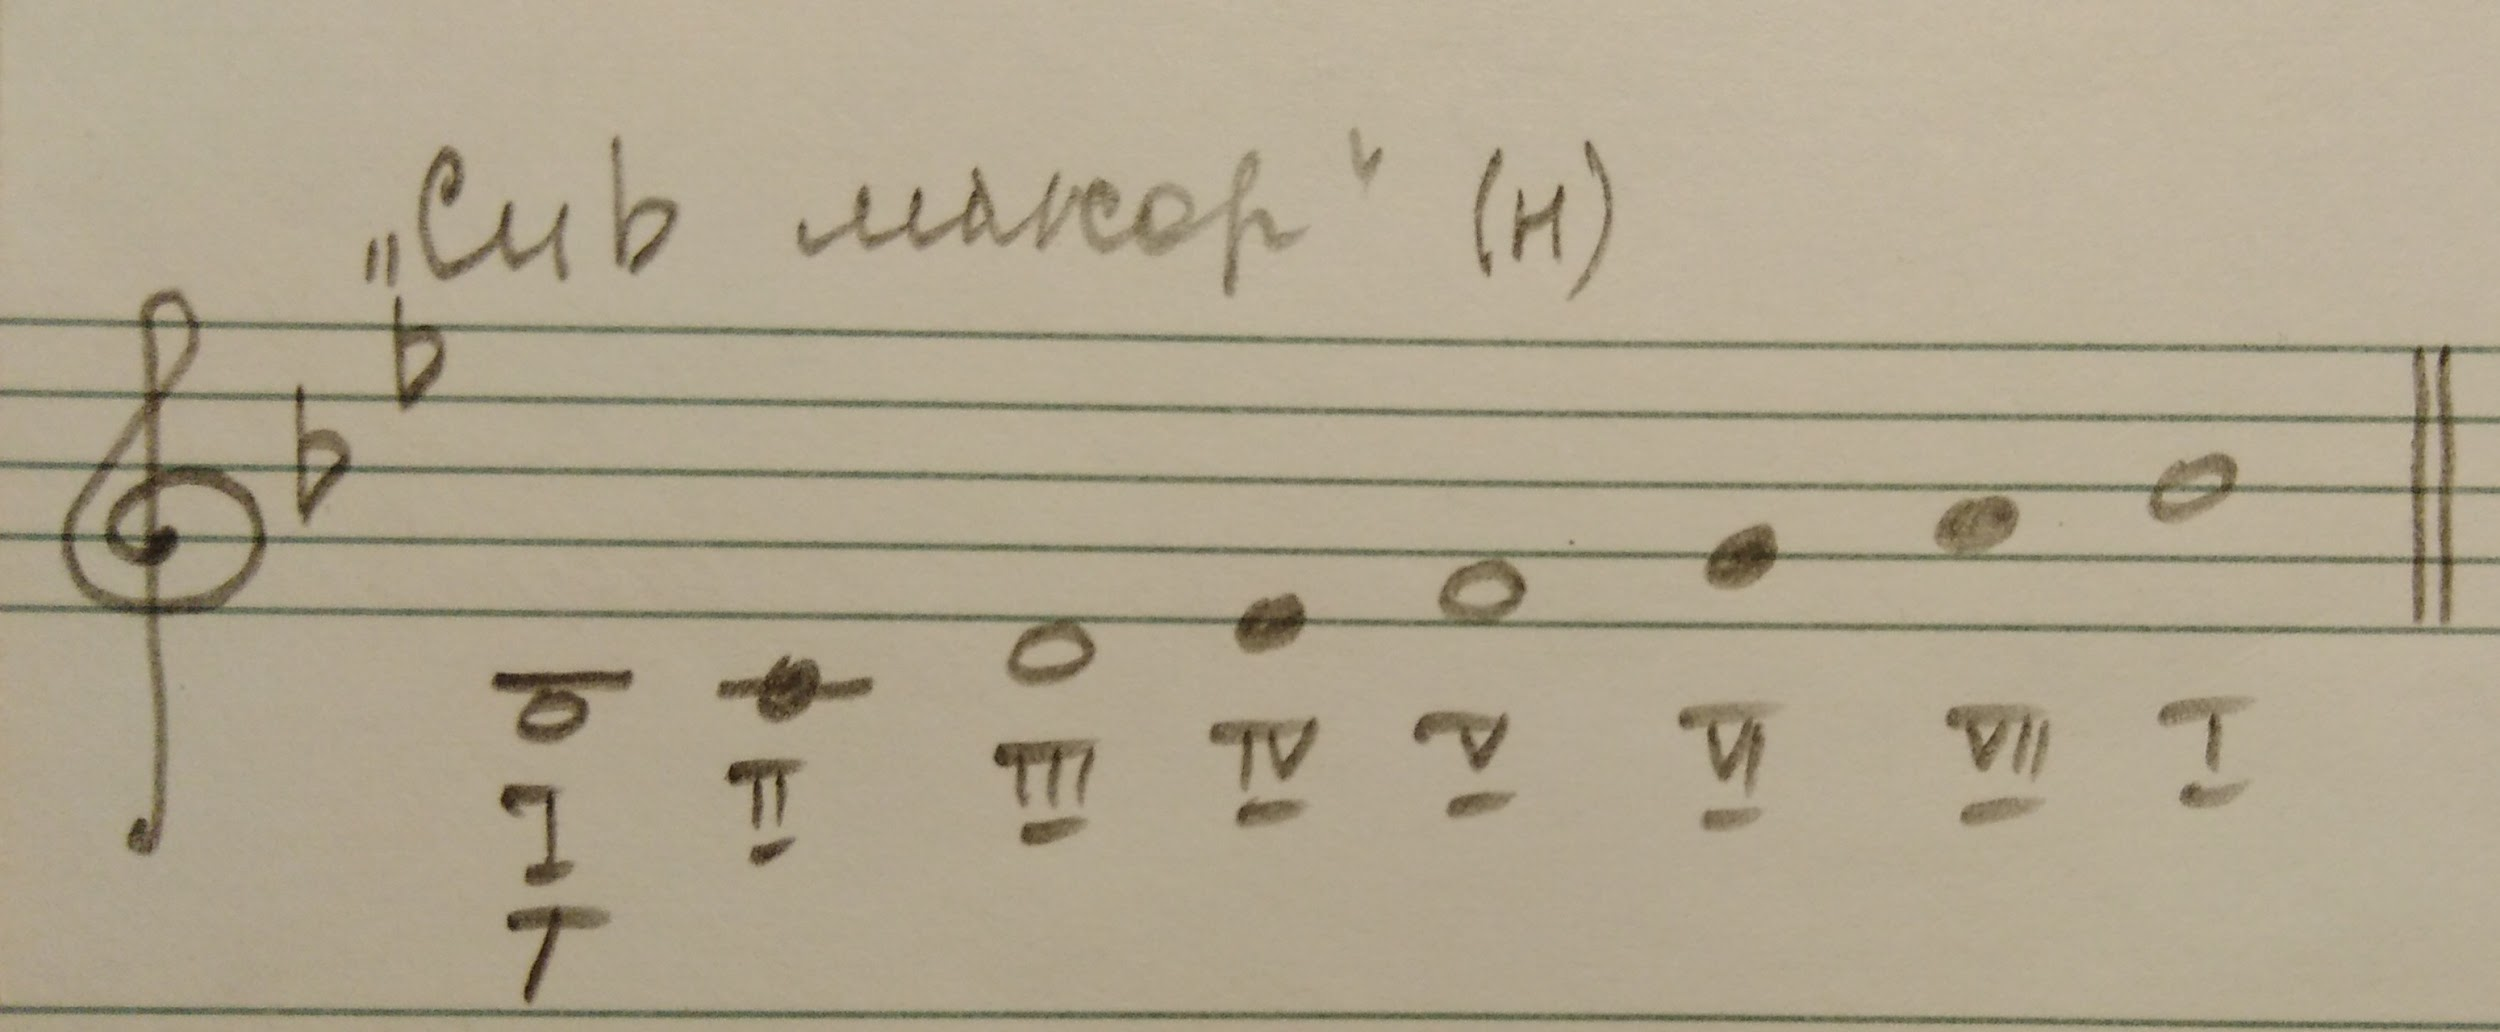 „Си♭ мажор“ (н)
I II III IV V VI VII I
T